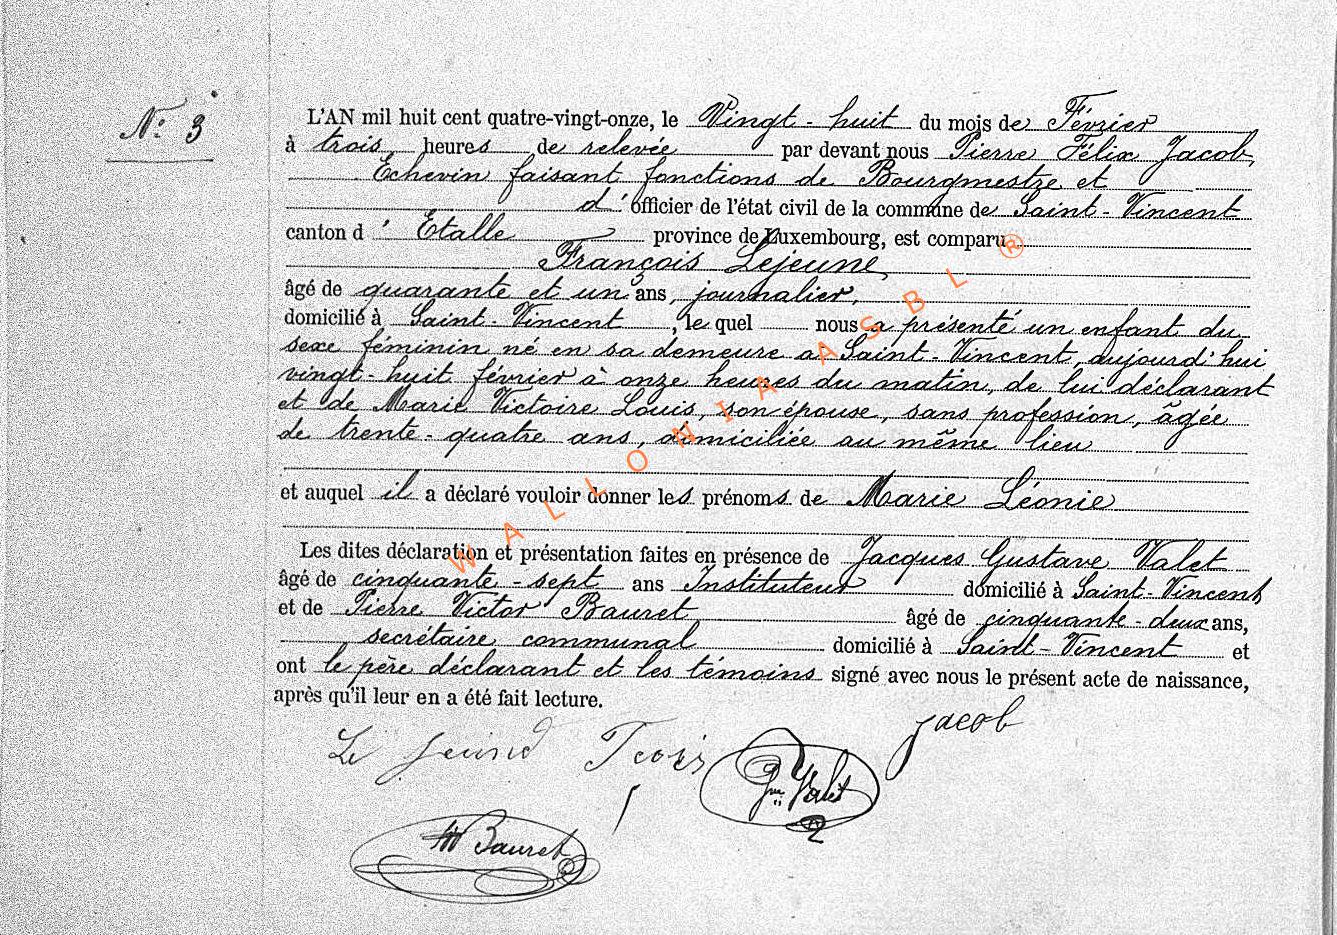 N.º 3
L'AN mil huit cent quatre-vingt-onze, le Vingt-huit du mois de Février
à trois heures de relevée par devant nous Pierre Félix Jacob,
Echevin faisant fonctions de Bourgmestre et
d'officier de l'état civil de la commune de Saint-Vincent
canton d'Etalle province de Luxembourg, est comparu
François Lejeune,
âgé de quarante et un ans, journalier,
domicilié à Saint-Vincent, le quel nous a présenté un enfant du
sexe féminin né en sa demeure à Saint-Vincent, aujourd'hui
vingt-huit février à onze heures du matin, de lui déclarant
et de Marie Victoire Louis, son épouse, sans profession, âgée
de trente-quatre ans, domiciliée au même lieu
et auquel il a déclaré vouloir donner les prénoms de Marie Léonie
Les dites déclaration et présentation faites en présence de Jacques Gustave Valet
âgé de cinquante-sept ans Instituteur domicilié à Saint-Vincent
et de Pierre Victor Bauret âgé de cinquante-deux ans,
secrétaire communal domicilié à Saint-Vincent et
ont le père déclarant et les témoins signé avec nous le présent acte de naissance,
après qu'il leur en a été fait lecture.
Jacob
Le
Valet
Bauret
WALLONIA ASBL ®